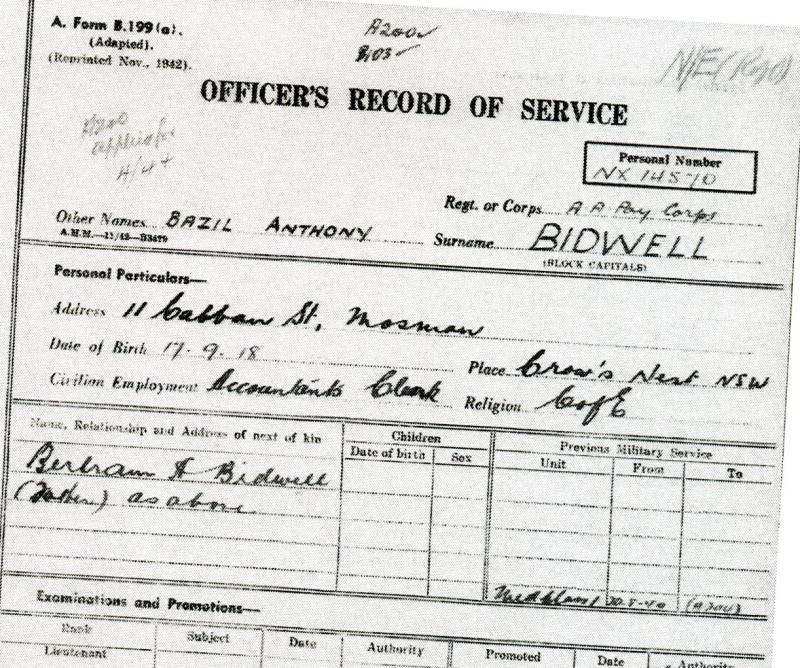 A. Form B.199(a).
(Adapted).
(Reprinted Nov., 1942).
A200
N/E (Rego)
OFFICER'S RECORD OF SERVICE
4/44
Personal Number
NX 14570
Regt. or Corps A A Pay Corps
Other Names BAZIL ANTHONY
Surname BIDWELL
(BLOCK CAPITALS)
Personal Particulars—
Address 11 Cabban St, Mosman
Date of Birth 17.9.18
Place Crow's Nest NSW
Civilian Employment Accountants Clerk
Religion C of E
Name, Relationship and Address of next of kin
Children
Previous Military Service
Date of birth Sex
Unit From To
Bertram A Bidwell
(Father) as above
Examinations and Promotions—
Rank Subject Date Authority Promoted Date Authority
Lieutenant